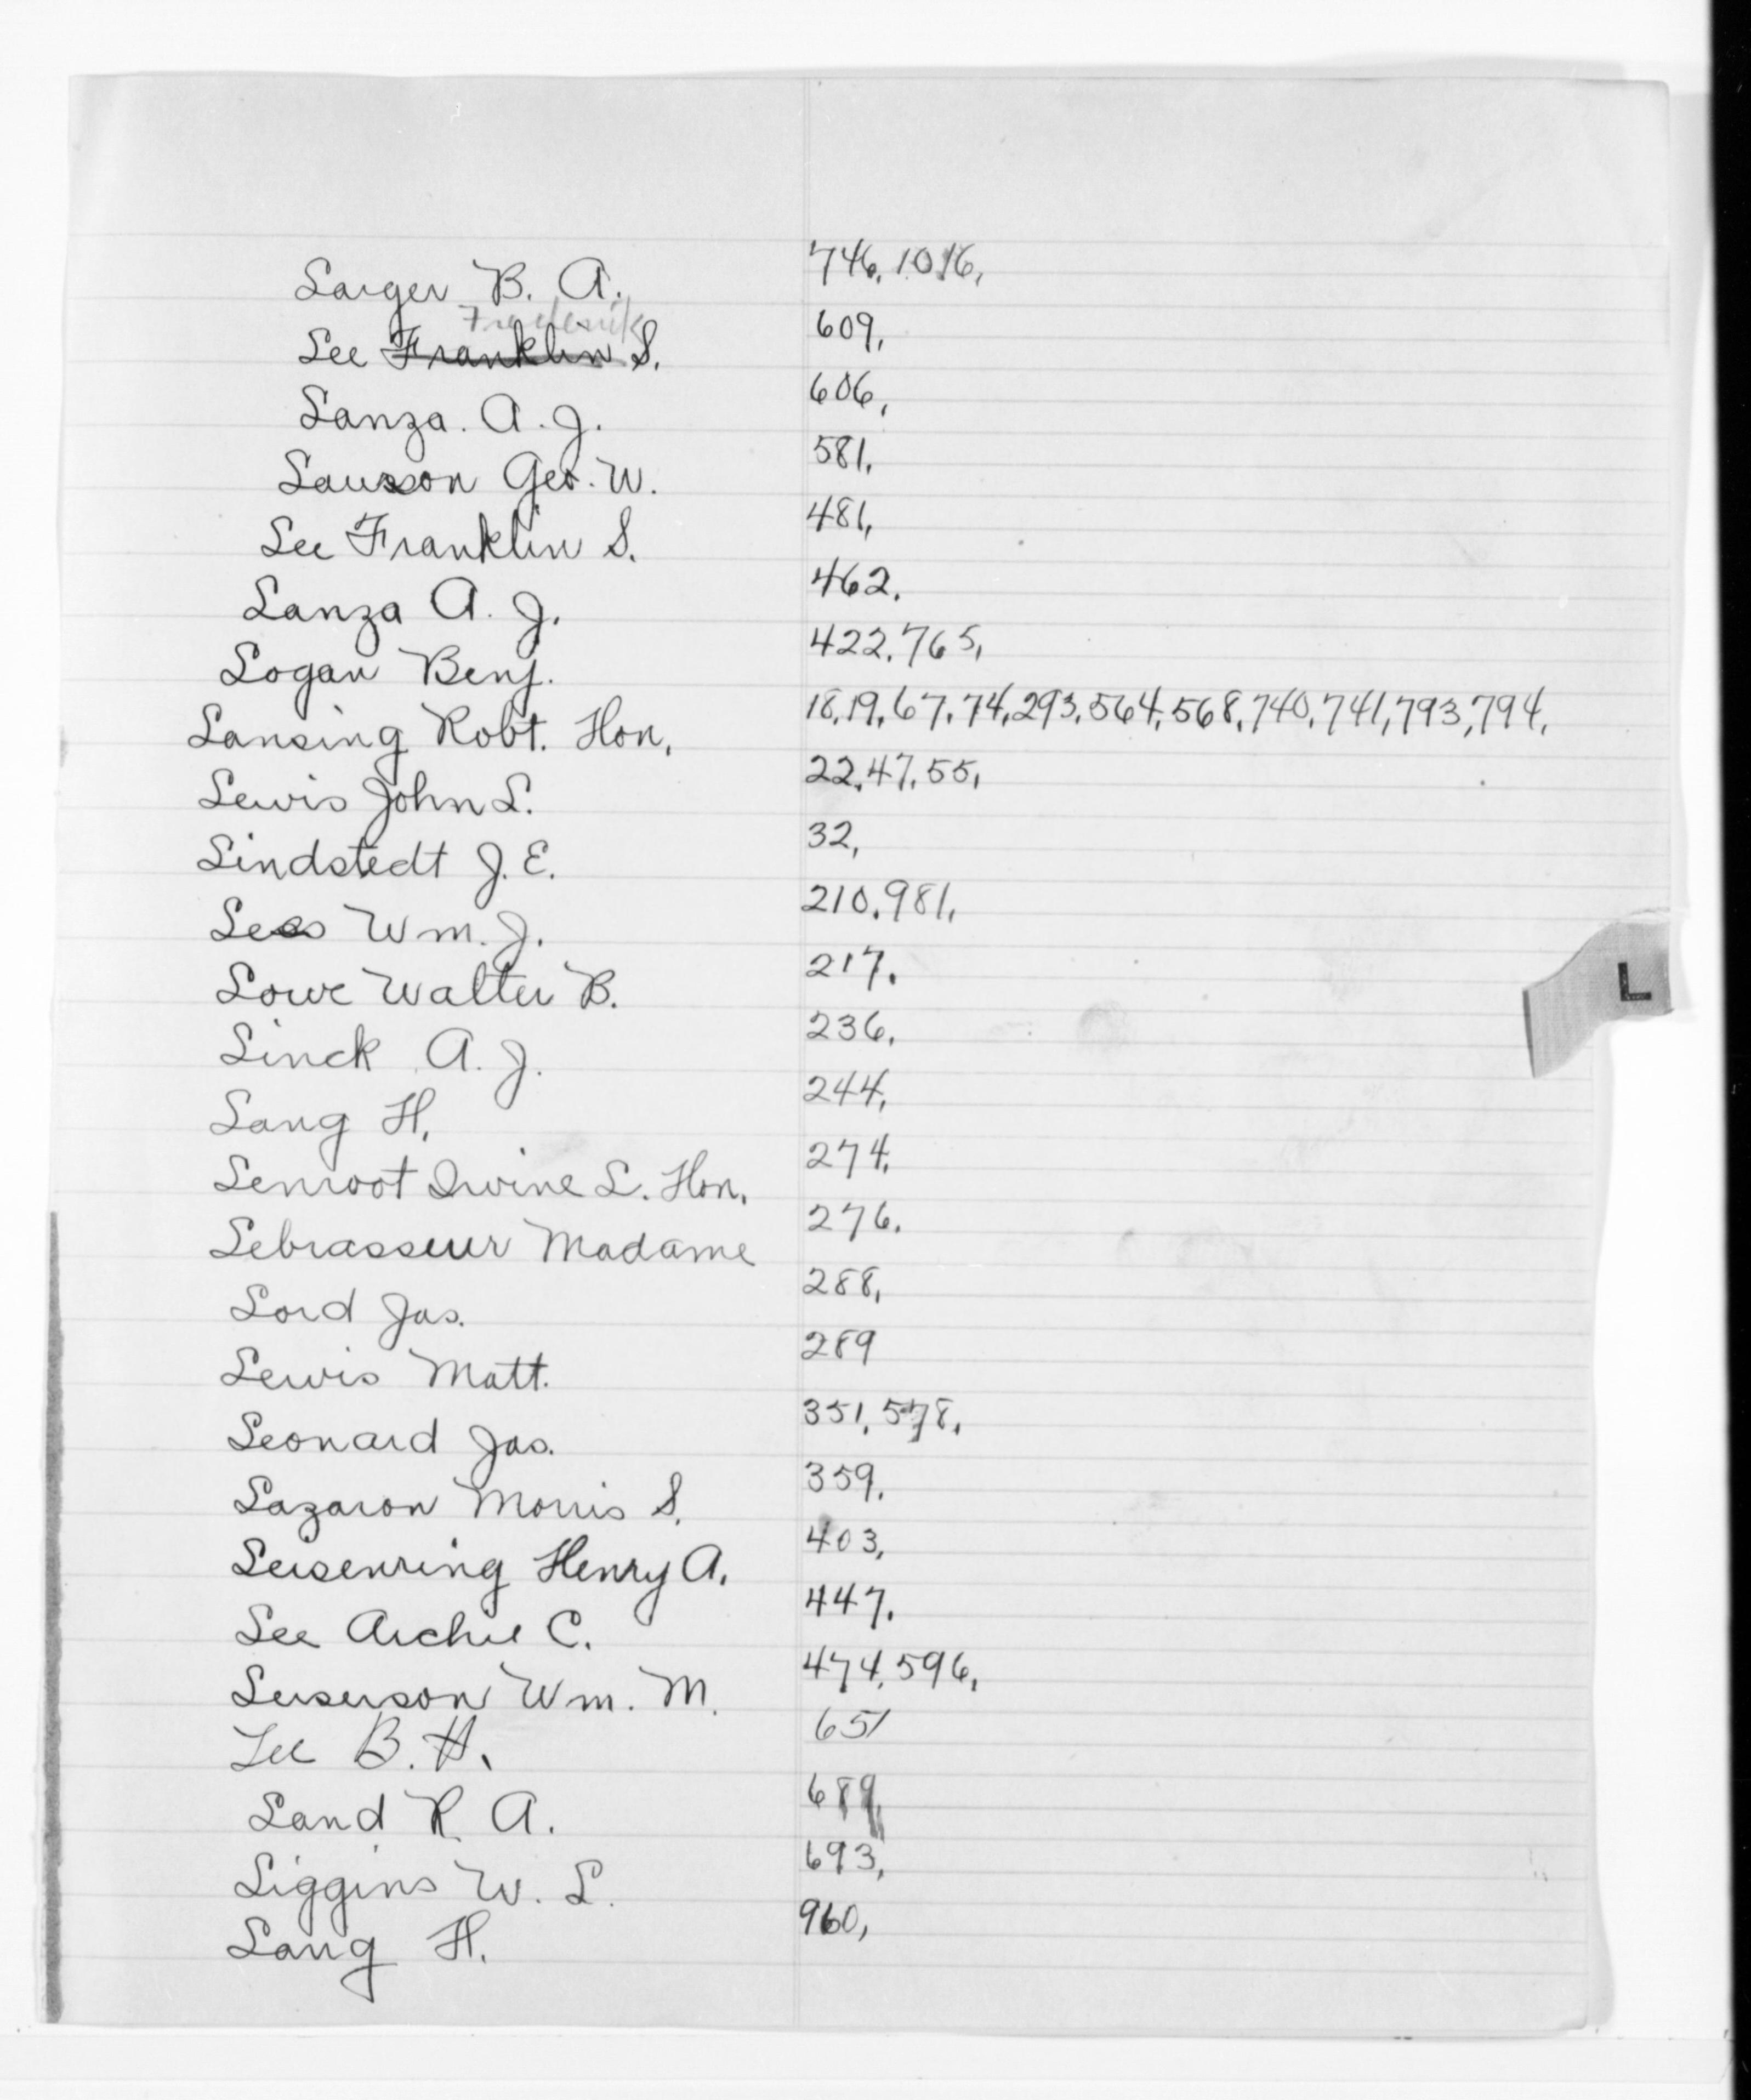 Larger B. A. 746, 1016,
Frederick
Lee Franklin S. 609,
Lanza. A. J. 606,
Lawson Geo. W. 581,
Lee Franklin S. 481,
Lanza A. J. 462.
Logan Benj. 422, 765,
Lansing Robt. Hon. 18, 19, 67, 74, 293, 564, 568, 740, 741, 793, 794,
Lewis John L. 22, 47, 55,
Lindstedt J. E. 32,
Lees Wm. J. 210, 981,
Lowe Walter B. 217.
Linck A. J. 236,
Lang H. 244,
Lenroot Irvine L. Hon. 274,
Lebrasseur Madame 276.
Lord Jas. 288,
Lewis Matt. 289
Leonard Jas. 351, 578,
Lazaron Morris S. 359,
Leisenring Henry A. 403,
Lee Archie C. 447.
Leiserson Wm. M. 474, 596,
Lee B. H. 651
Land R. A. 689,
Liggins W. L. 693,
Lang H. 960,
L